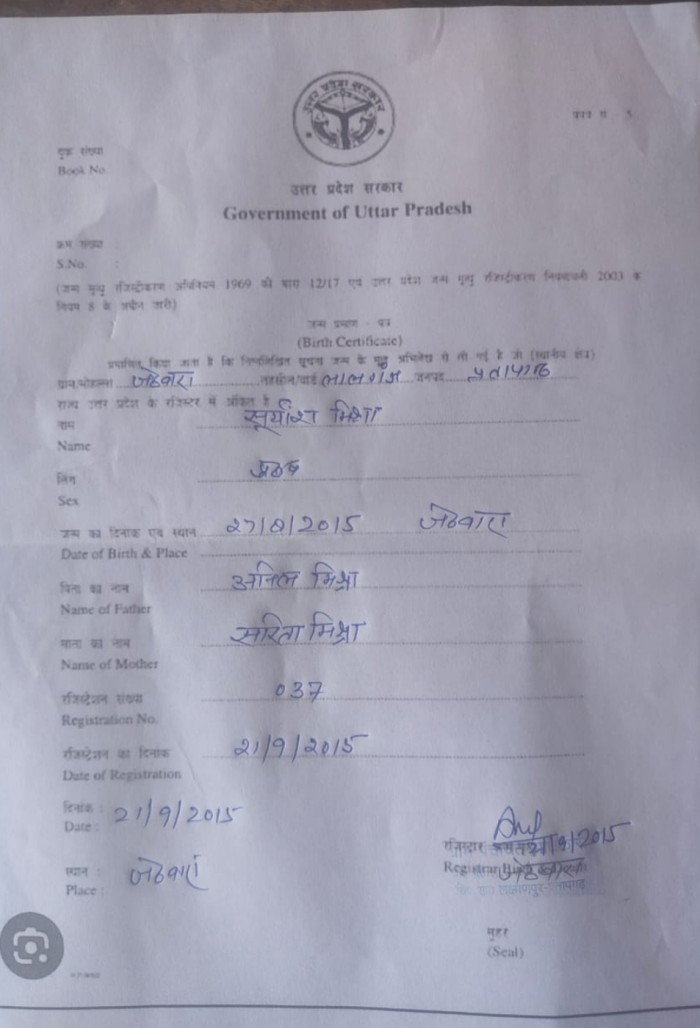 उत्तर प्रदेश सरकार
प्रपत्र सं 5
बुक संख्या
Book No.
उत्तर प्रदेश सरकार
Government of Uttar Pradesh
क्रम संख्या :
S.No. :
(जन्म मृत्यु रजिस्ट्रीकरण अधिनियम 1969 की धारा 12/17 एवं उत्तर प्रदेश जन्म मृत्यु रजिस्ट्रीकरण नियमावली 2003 के
नियम 8 के अधीन जारी)
जन्म प्रमाण - पत्र
(Birth Certificate)
प्रमाणित किया जाता है कि निम्नलिखित सूचना जन्म के मूल अभिलेख से ली गई है जो (स्थानीय क्षेत्र)
ग्राम/मोहल्ला जेठवारा तहसील/वार्ड लालगंज जनपद प्रतापगढ़
राज्य उत्तर प्रदेश के रजिस्टर में अंकित है
नाम सूर्यांश मिश्रा
Name
लिंग पुरुष
Sex
जन्म का दिनांक एवं स्थान 27/8/2015 जेठवारा
Date of Birth & Place
पिता का नाम अनिल मिश्रा
Name of Father
माता का नाम सरिता मिश्रा
Name of Mother
रजिस्ट्रेशन संख्या 037
Registration No.
रजिस्ट्रेशन का दिनांक 21/9/2015
Date of Registration
दिनांक : 21/9/2015
Date :
रजिस्ट्रार 21/9/2015
Registrar जेठवारा
स्थान : जेठवारा
Place :
मुहर
(Seal)